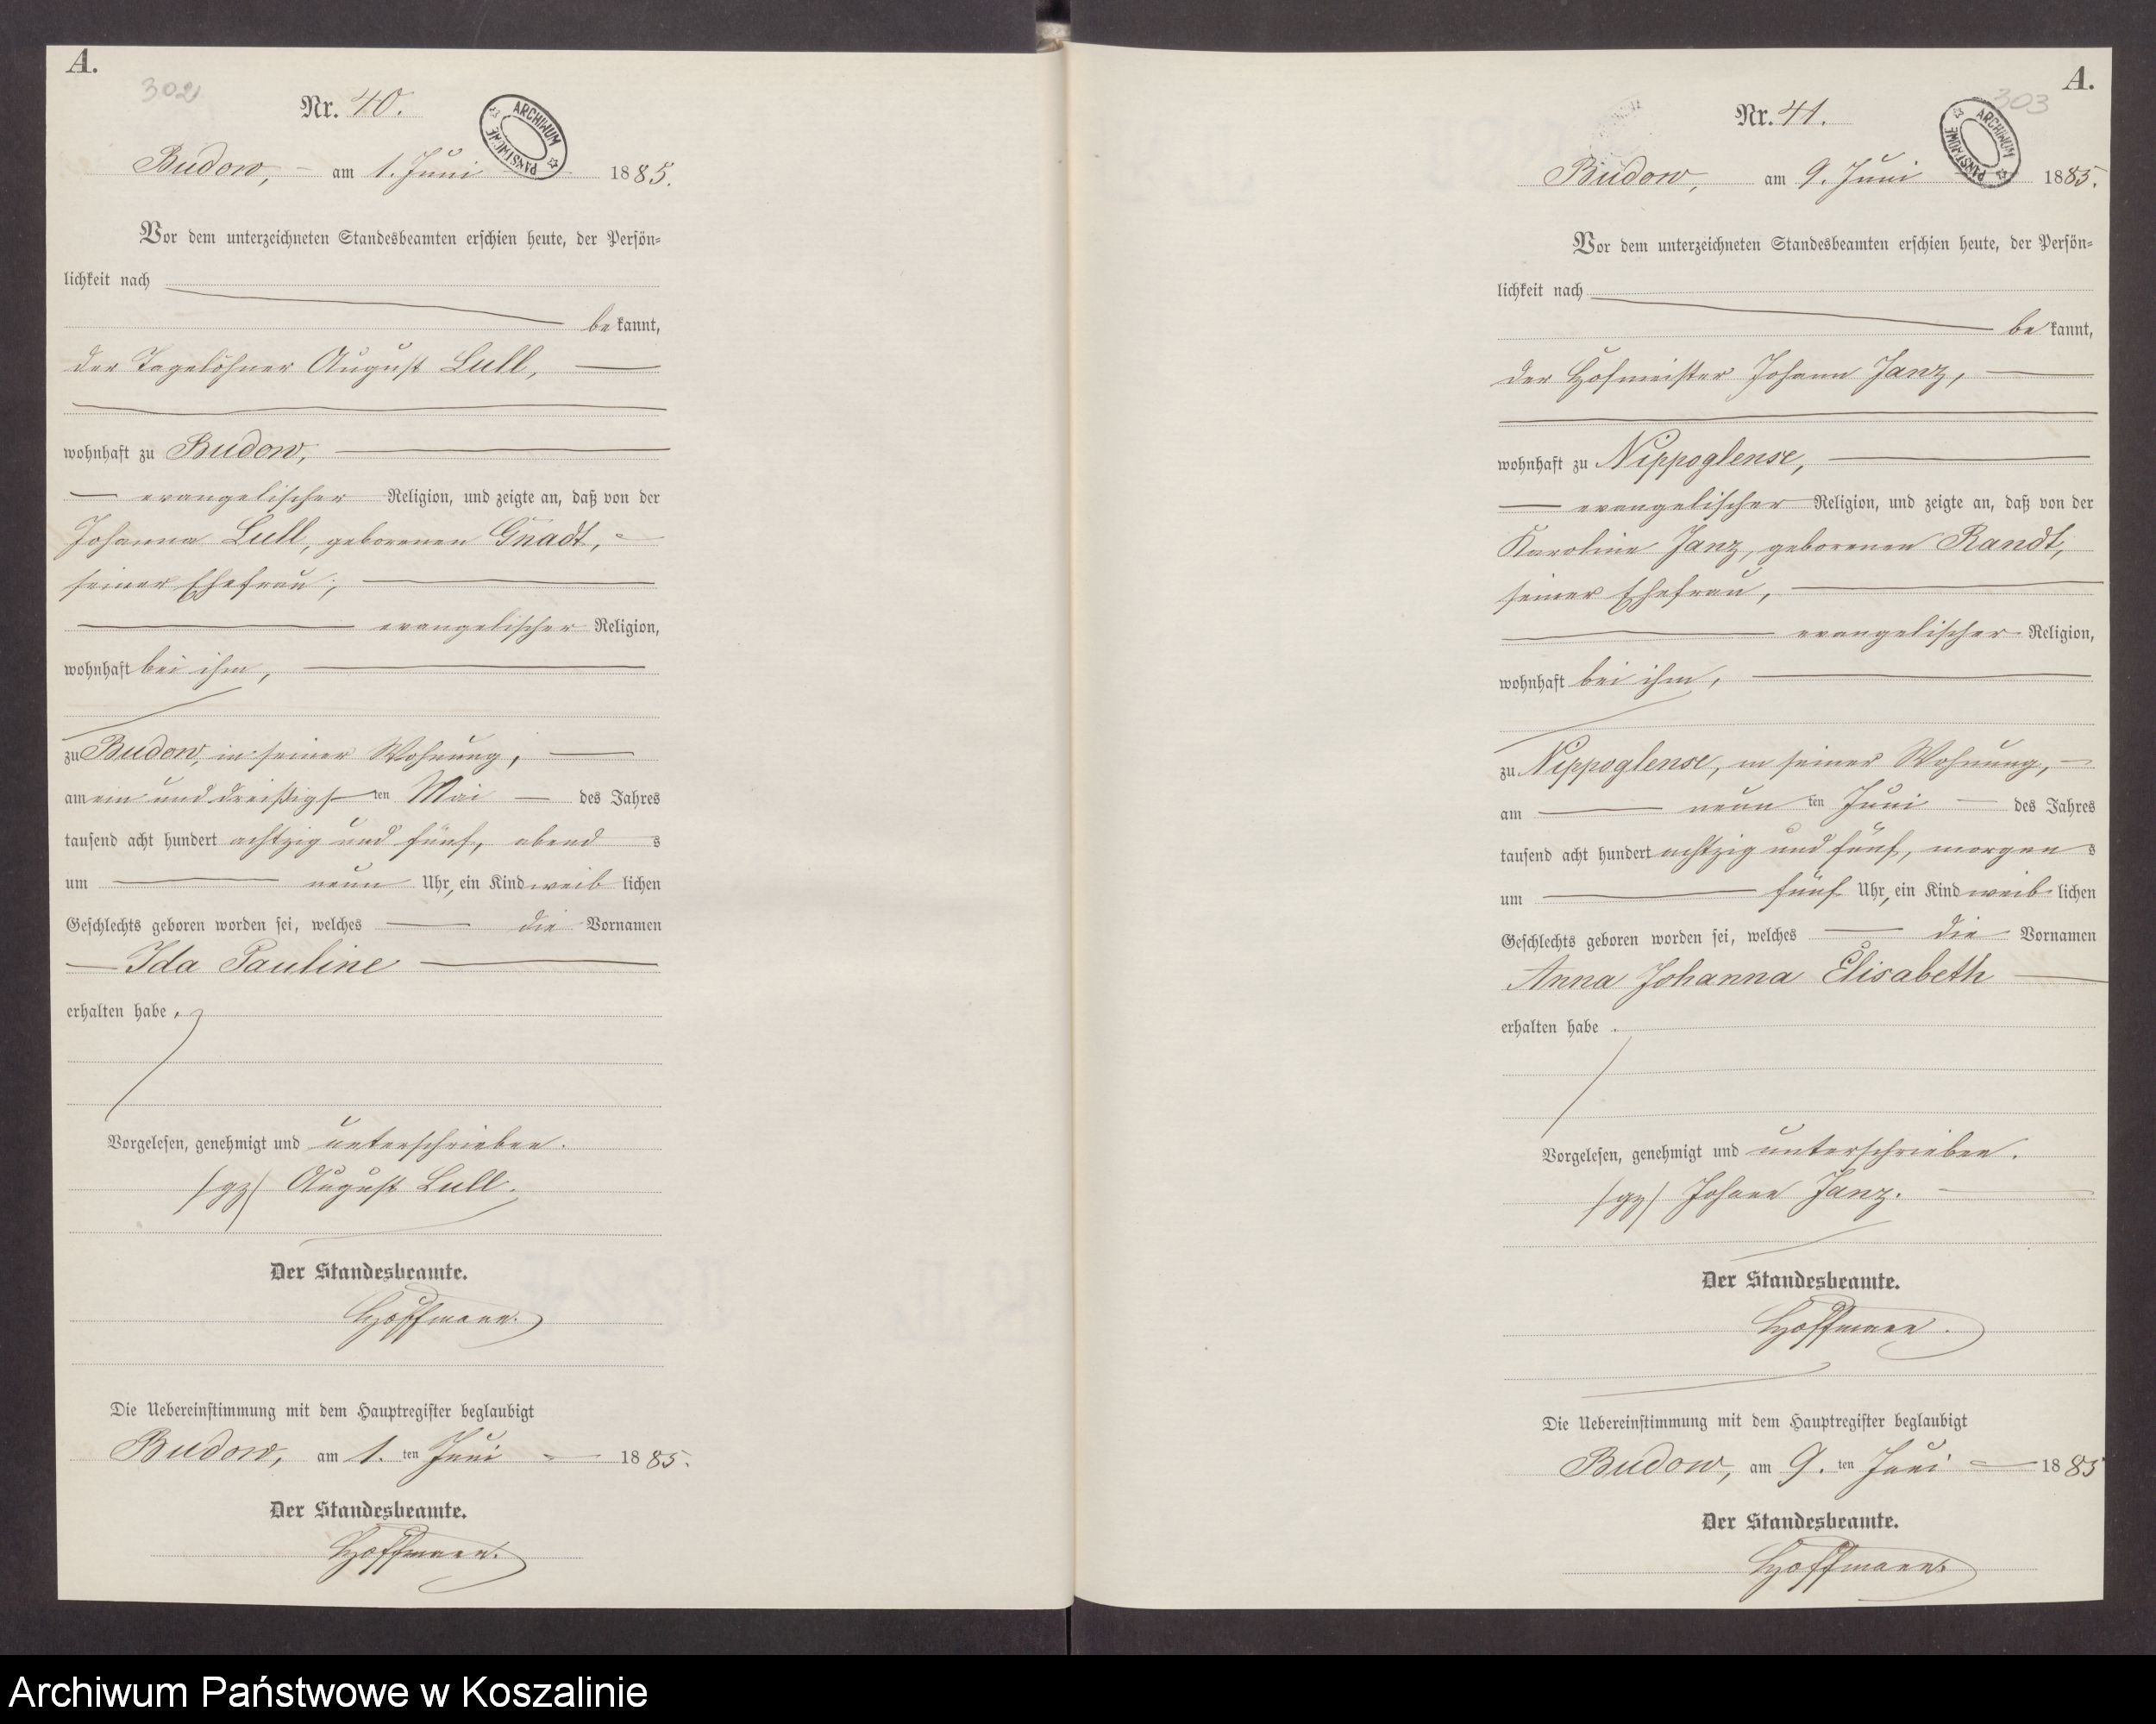 A.
302
Nr. 40.
ARCHIWUM PAŃSTWOWE
Budow, am 1. Juni 1885.
Vor dem unterzeichneten Standesbeamten erschien heute, der Persön=
lichkeit nach
be kannt,
der Tagelöhner August Lull,
wohnhaft zu Budow,
evangelischer Religion, und zeigte an, daß von der
Johanna Lull, geborenen Gnadt,
seiner Ehefrau,
evangelischer Religion,
wohnhaft bei ihm,
zu Budow, in seiner Wohnung,
am ein und dreißigsten Mai des Jahres
tausend acht hundert achtzig und fünf, abend s
um neun Uhr, ein Kind weib lichen
Geschlechts geboren worden sei, welches die Vornamen
Ida Pauline
erhalten habe.
Vorgelesen, genehmigt und unterschrieben.
/gz/ August Lull.
Der Standesbeamte.
Hoffmann.
Die Uebereinstimmung mit dem Hauptregister beglaubigt
Budow, am 1. ten Juni 1885.
Der Standesbeamte.
Hoffmann.
A.
303
Nr. 41.
ARCHIWUM PAŃSTWOWE
Budow, am 9. Juni 1885.
Vor dem unterzeichneten Standesbeamten erschien heute, der Persön=
lichkeit nach
be kannt,
der Hofmeister Johann Janz,
wohnhaft zu Nippoglense,
evangelischer Religion, und zeigte an, daß von der
Karoline Janz, geborenen Randt,
seiner Ehefrau,
evangelischer Religion,
wohnhaft bei ihm,
zu Nippoglense, in seiner Wohnung,
am neun ten Juni des Jahres
tausend acht hundert achtzig und fünf, morgen s
um fünf Uhr, ein Kind weib lichen
Geschlechts geboren worden sei, welches die Vornamen
Anna Johanna Elisabeth
erhalten habe.
Vorgelesen, genehmigt und unterschrieben.
/gz/ Johann Janz.
Der Standesbeamte.
Hoffmann.
Die Uebereinstimmung mit dem Hauptregister beglaubigt
Budow, am 9. ten Juni 1885
Der Standesbeamte.
Hoffmann.
Archiwum Państwowe w Koszalinie